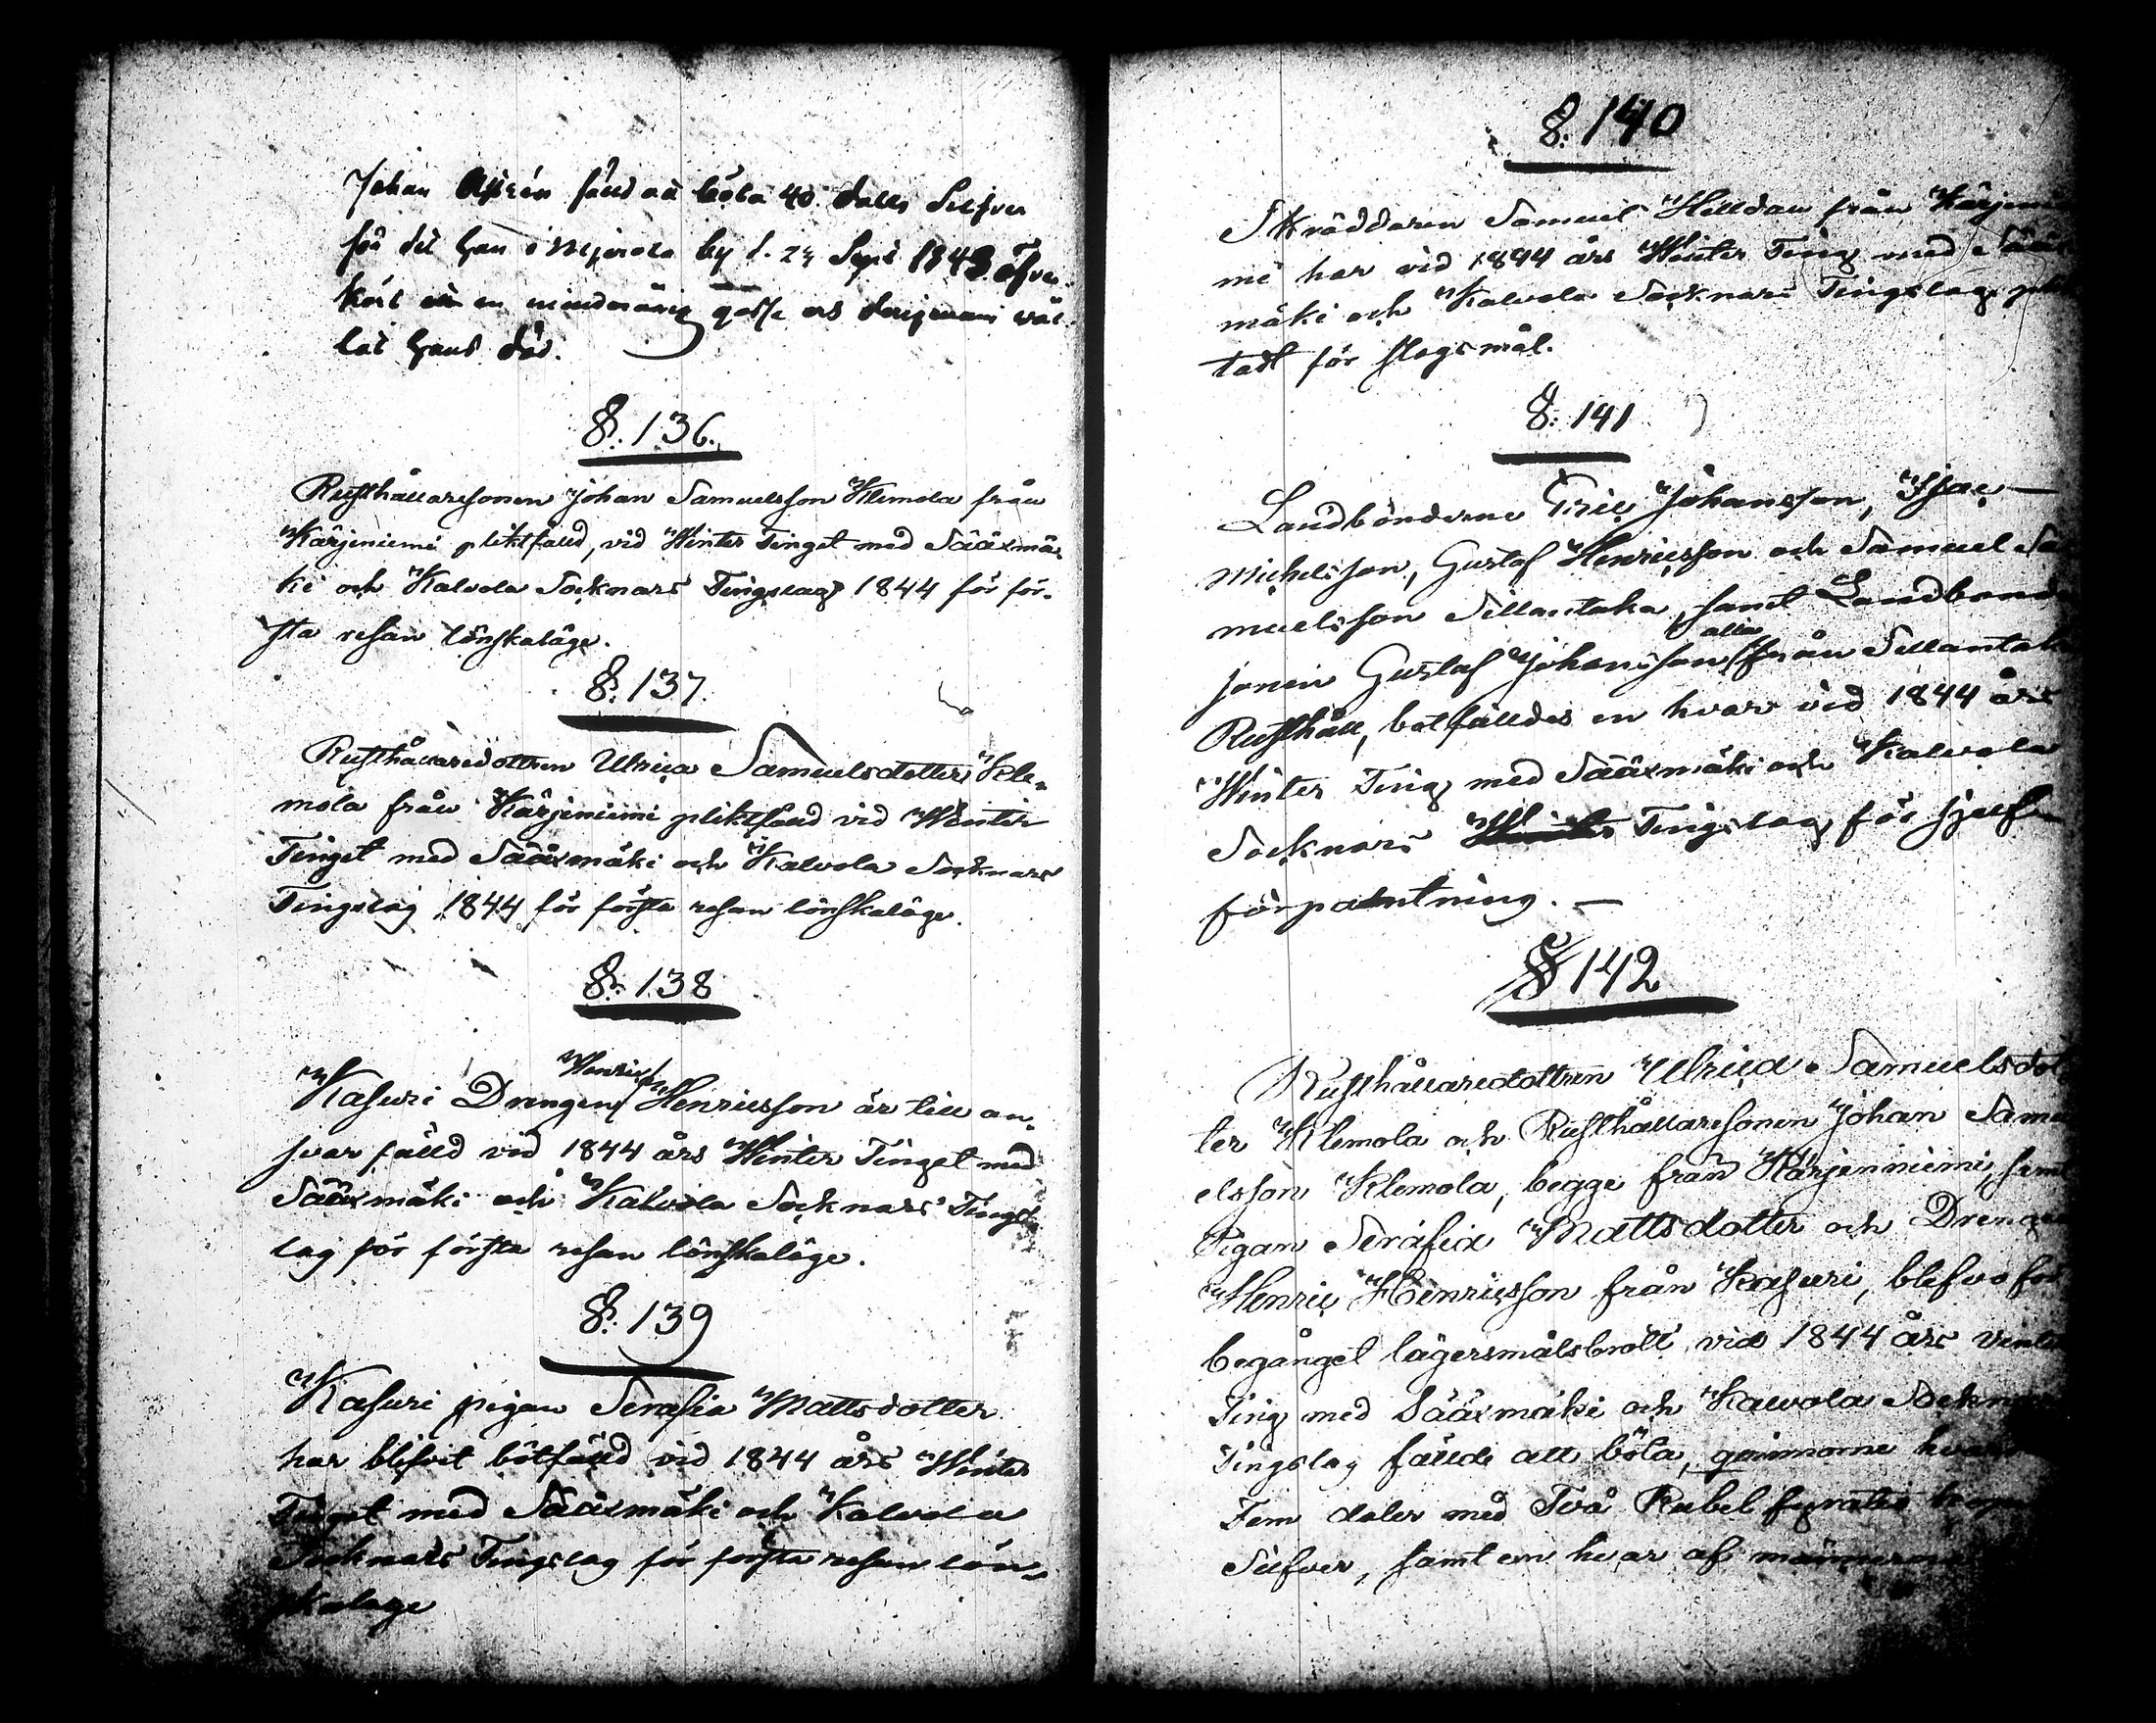 Johan Ahrén fälld att böta 40 daler Silfver
för det han i Mejrola by d. 24 Sept 1843 öfver
kört en minderårig gosse och derigenom vål-
lat hans död.
§. 136.
Rusthållaresonen Johan Samuelsson Klemola från
Kärjeniemi pliktfälld, vid Winter Tinget med Sääxmä-
ki och Kalvola Socknars Tingslag 1844 för för-
sta resan lönskaläge.
§. 137.
Rusthållaredottren Ulrica Samuelsdotter Kle-
mola från Kärjeniemi pliktfälld vid Winter
Tinget med Sääxmäki och Kalvola Socknars
Tingslag 1844 för första resan lönskaläge.
§. 138
Henric
Kasuri Drengen Henricsson är till an-
svar fälld vid 1844 års Winter Tinget med
Sääxmäki och Kalvola Socknars Tings-
lag för första resan lönskaläge.
§. 139
Kasuri pigan Serafia Mattsdotter
har blifvit bötfälld vid 1844 års Winter
Tinget med Sääxmäki och Kalvola
Socknars Tingslag för första resan löns-
kaläge
§. 140
Skräddaren Samuel Helldan från Kärjenie
mi har vid 1844 års Winter Ting med Sääx
mäki och Kalvola Socknars Tingslag plik
tadt för slagsmål.
§. 141
Landbönderne Eric Johansson, Isac
Michelsson, Gustaf Henricsson och Samuel Sa
muelsson Sillantaka, samt Landbonde
alla
sonen Gustaf Johansson från Sillantaka
Rusthåll, botfälldes en hvar vid 1844 års
Winter Ting med Sääxmäki och Kalvola
Socknars Tingslag för sjelf
förpantning. —
§ 142
Rusthållaredottren Ulrica Samuelsdot
ter Klemola och Rusthållaresonen Johan Samu
elsson Klemola, begge från Kärjenniemi, samt
Pigan Serafia Mattsdotter och Drengen
Henric Henricsson från Kasuri, blefvo för
begånget lägersmålsbrott vid 1844 års Vinter
Ting med Sääxmäki och Kalvola Socknars
Tingslag fällde att böta, qvinnorne hvar
Fem daler med Två Rubel fyratio kop
Silfver, samt en hvar af männerne